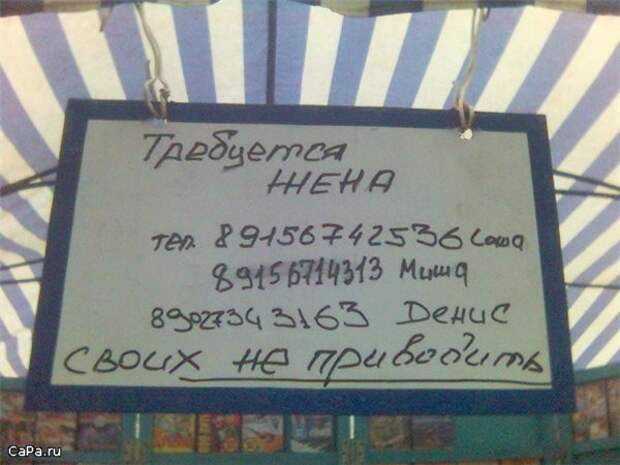 Требуется
ЖЕНА
тел. 89156742536 Саша
89156714313 Миша
89027343163 Денис
своих не приводить
CaPa.ru